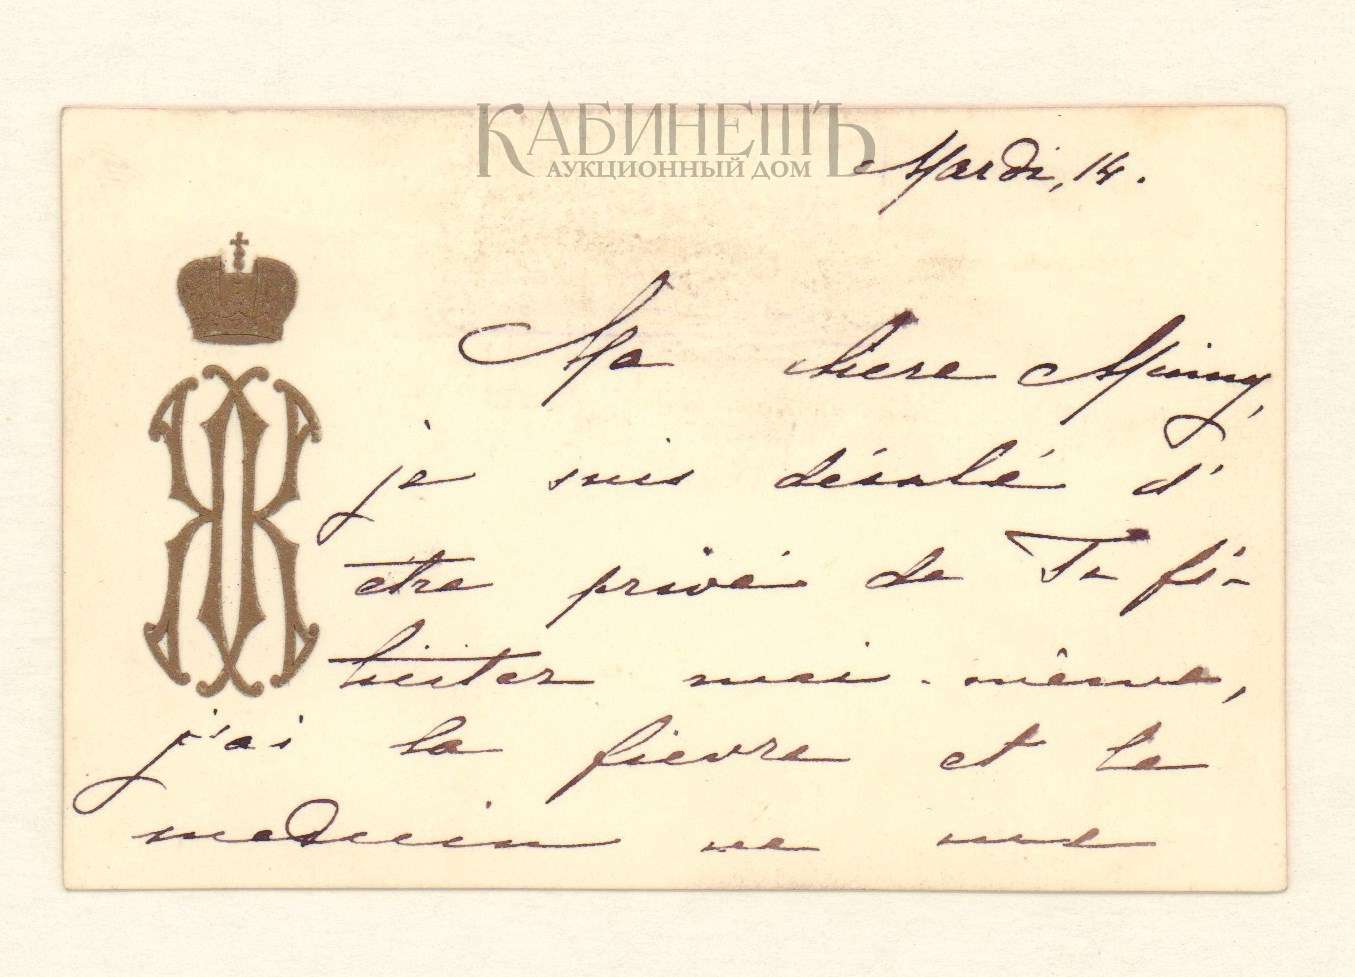 КАБИНЕТЪ
АУКЦИОННЫЙ ДОМ
Mardi, 14.
Ma chere Minny,
je suis désolé d'
etre privé de Te fé-
liciter moi-même,
j'ai la fievre et le
medecin ne me